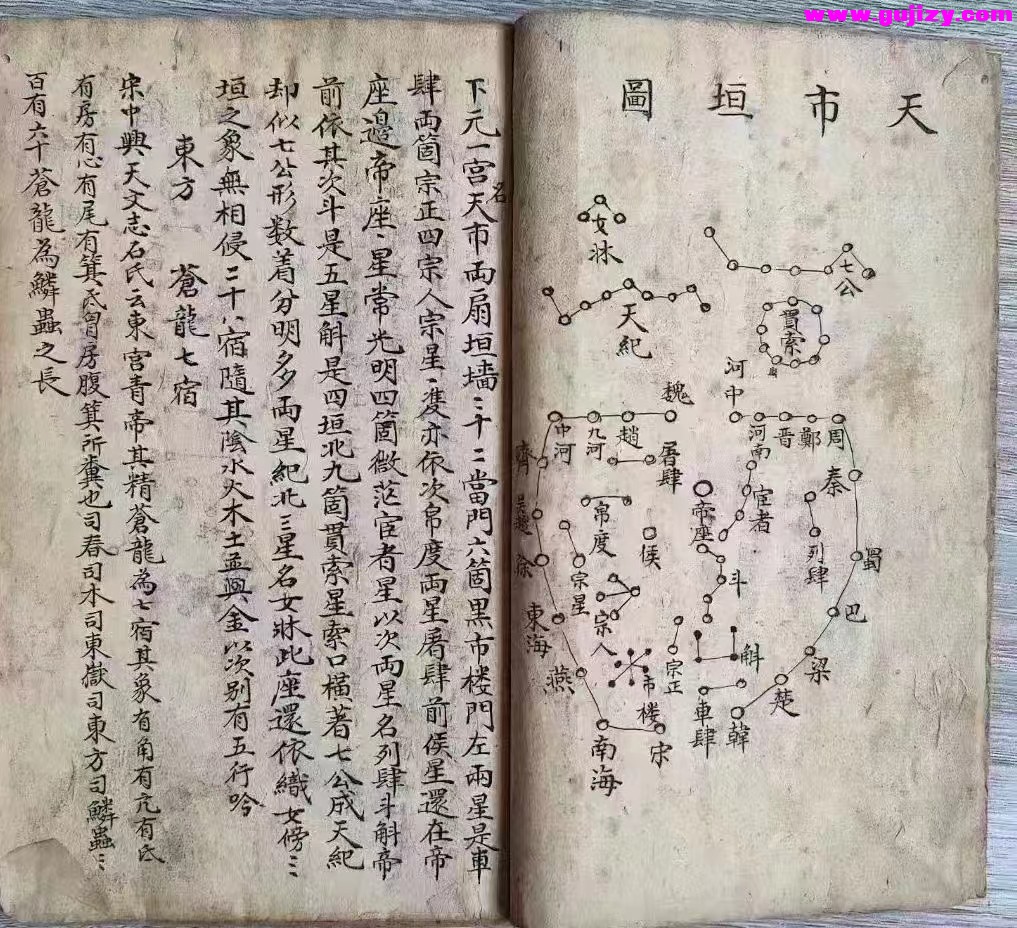 www.gujizy.com
天市垣圖
七公
貫索
女牀
天紀
河中
河南
晋
鄭
周
秦
蜀
巴
梁
楚
韓
魏
趙
九河
中河
齊
吴越
徐
東海
燕
南海
宋
屠肆
帛度
侯
帝座
宦者
列肆
斗
斛
宗星
宗人
宗正
市楼
車肆
下元一宫名天市兩扇垣墙二十二當門六箇黑市楼門左兩星是車
肆兩箇宗正四宗人宗星〻隻亦依次帛度兩星屠肆前侯星還在帝
座邉帝座〻星常光明四箇微茫宦者星以次兩星名列肆斗斛帝
前依其次斗是五星斛是四垣北九箇貫索星索口横著七公成天紀
却似七公形数着分明多兩星紀北三星名女牀此座還依織女傍三
垣之象無相侵二十八宿隨其陰水火木土並與金以次别有五行吟
東方 蒼龍七宿
宋中興天文志石氏云東宫青帝其精蒼龍為七宿其象有角有亢有氐
有房有心有尾有箕氐胷房腹箕所糞也司春司木司東嶽司東方司鱗蟲三
百有六十蒼龍為鱗蟲之長